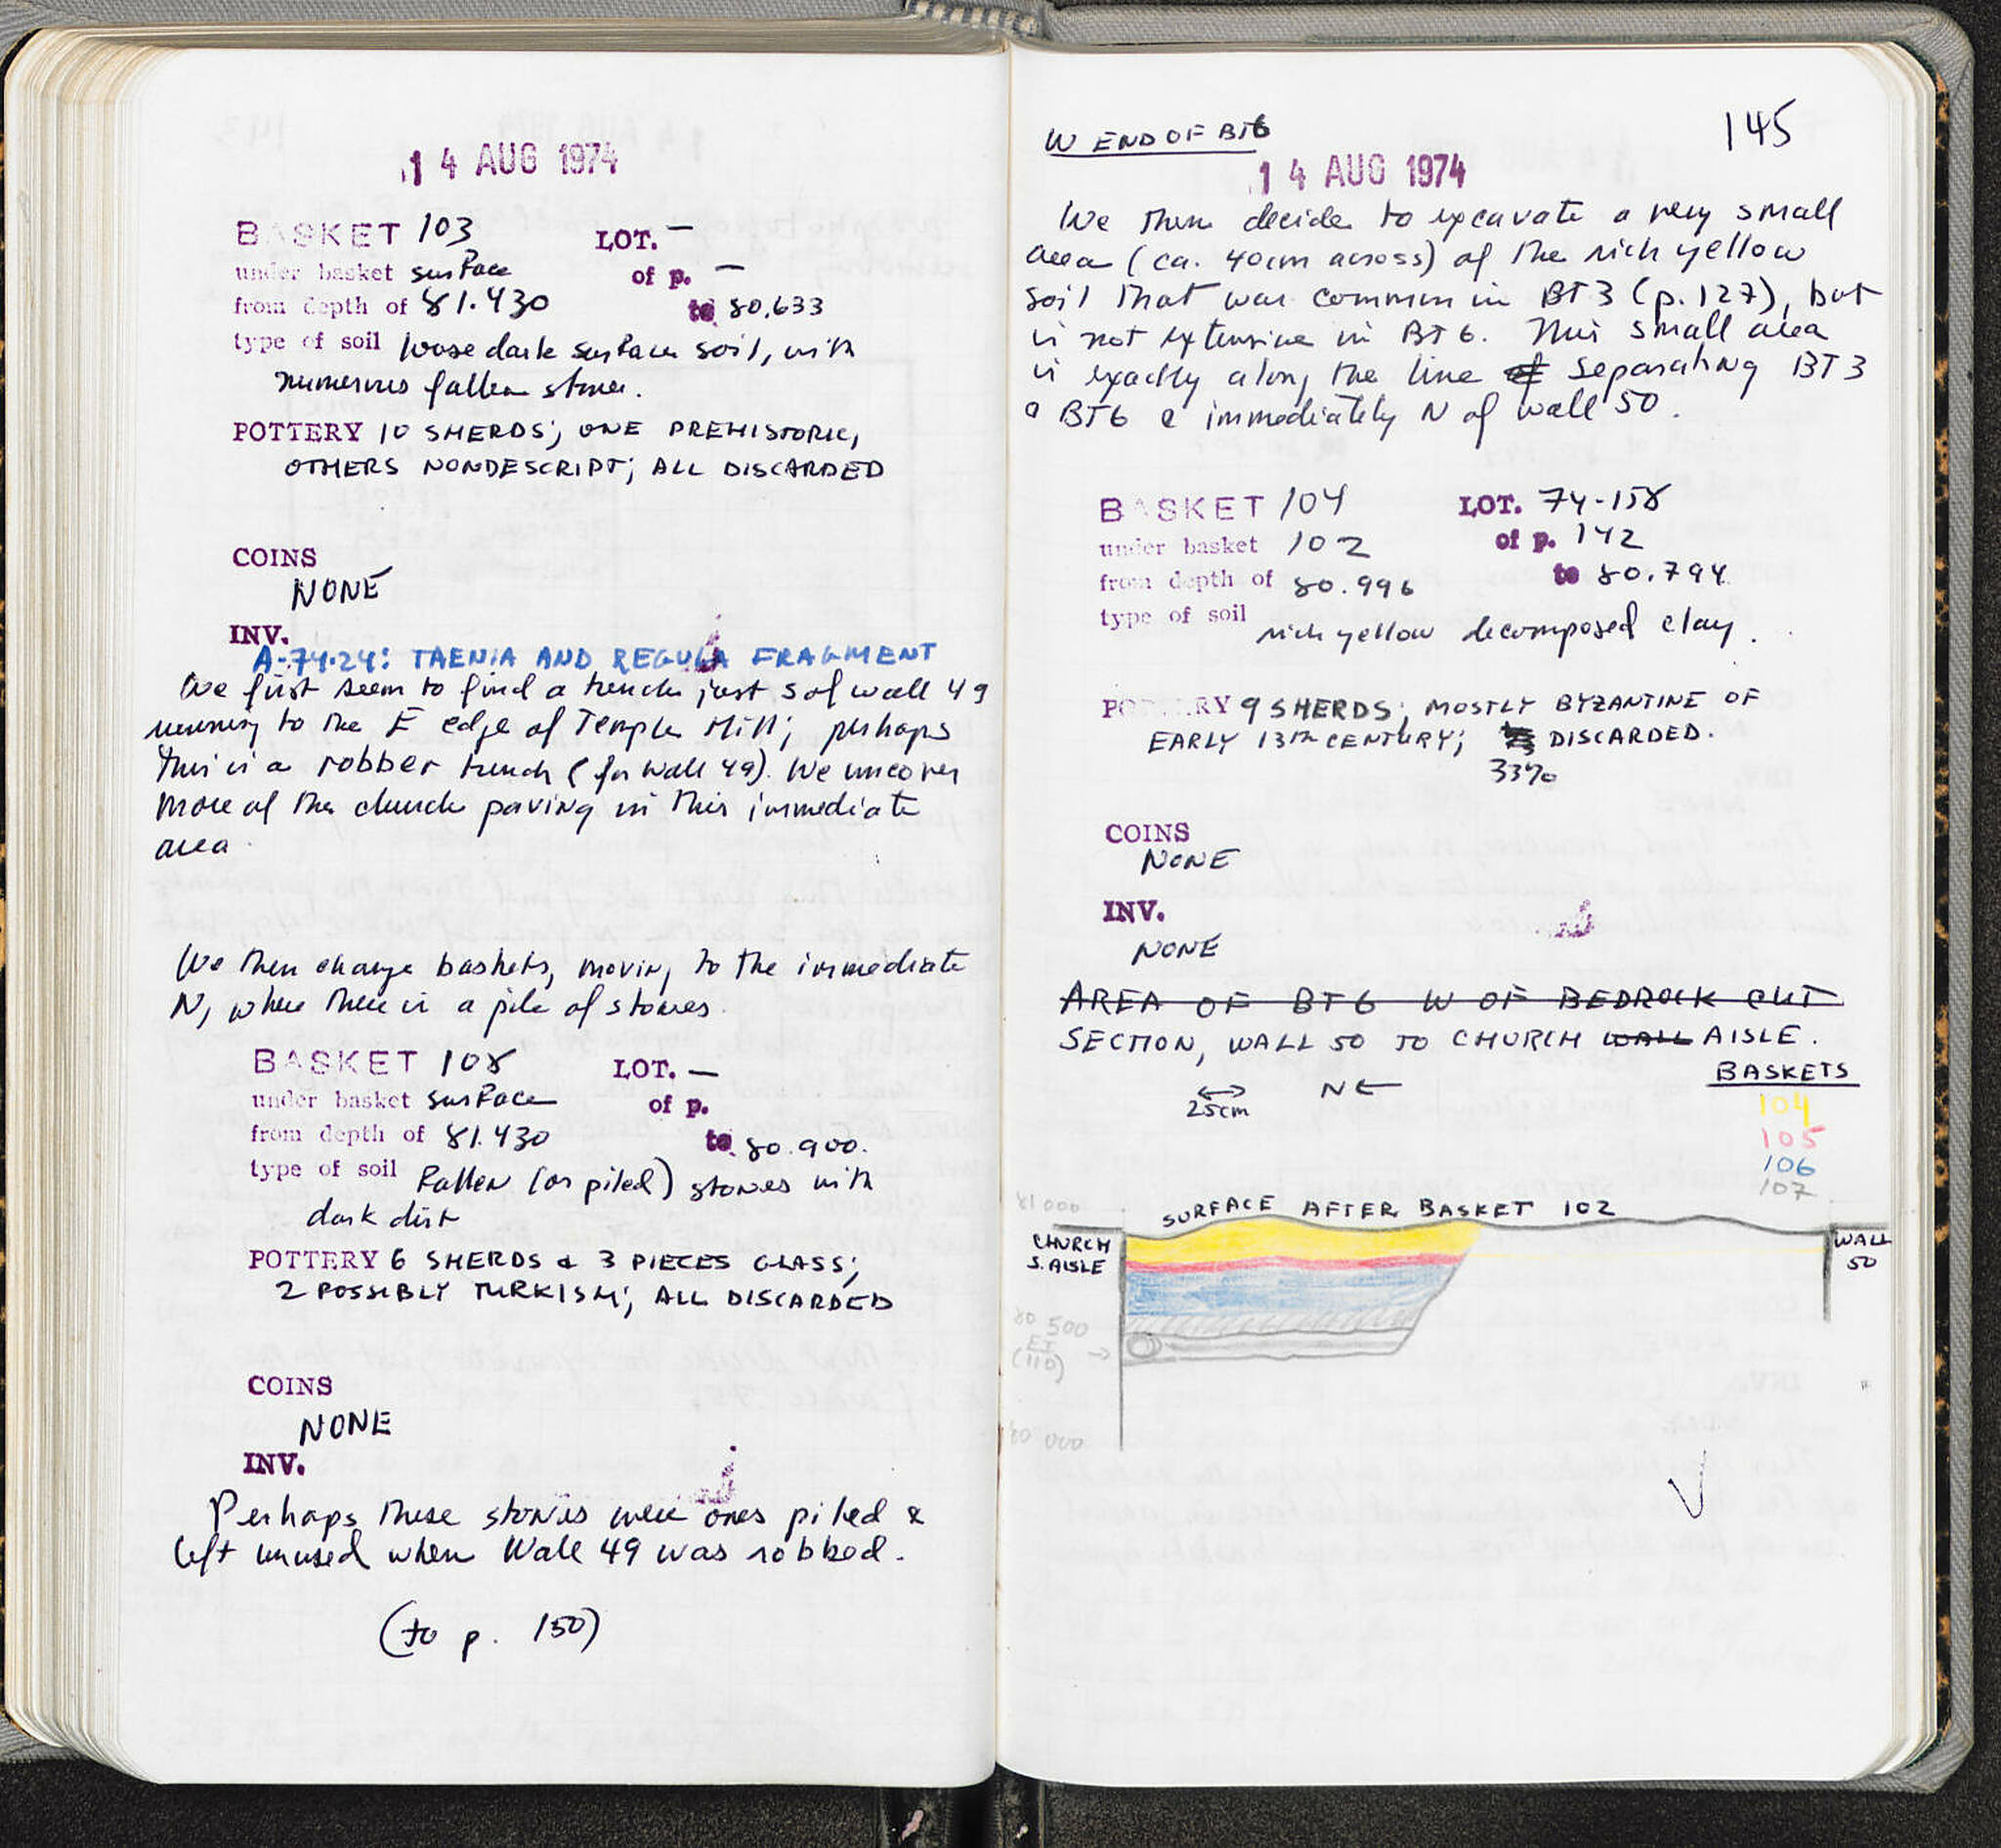 14 AUG 1974
BASKET 103 LOT. —
under basket surface of p. —
from depth of 81.430 to 80.633
type of soil loose dark surface soil, with
numerous fallen stones.
POTTERY 10 SHERDS; ONE PREHISTORIC,
OTHERS NONDESCRIPT; ALL DISCARDED
COINS
NONE
INV.
A-74-24: TAENIA AND REGULA FRAGMENT
We first seem to find a trench just S of wall 49
running to the E edge of Temple Hill; perhaps
this is a robber trench (for wall 49). We uncover
more of the church paving in this immediate
area.
We then change baskets, moving to the immediate
N, where there is a pile of stones.
BASKET 108 LOT. —
under basket surface of p.
from depth of 81.430 to 80.900.
type of soil Fallen (or piled) stones with
dark dirt
POTTERY 6 SHERDS & 3 PIECES GLASS;
2 POSSIBLY TURKISH; ALL DISCARDED
COINS
NONE
INV.
Perhaps these stones were ones piled &
left unused when Wall 49 was robbed.
(to p. 150)
W END OF BT6
145
14 AUG 1974
We then decide to excavate a very small
area (ca. 40cm across) of the rich yellow
soil that was common in BT3 (p. 127), but
is not extensive in BT6. This small area
is exactly along the line of separating BT3
& BT6 & immediately N of wall 50.
BASKET 104 LOT. 74-158
under basket 102 of p. 142
from depth of 80.996 to 80.794
type of soil rich yellow decomposed clay.
POTTERY 9 SHERDS; MOSTLY BYZANTINE OF
EARLY 13TH CENTURY; DISCARDED.
33%
COINS
NONE
INV.
NONE
AREA OF BT6 W OF BEDROCK CUT
SECTION, WALL 50 TO CHURCH WALL AISLE.
BASKETS
25cm N←
104
105
106
107
81 000
SURFACE AFTER BASKET 102
CHURCH
S. AISLE
WALL
50
80 500
(110) →
80 000